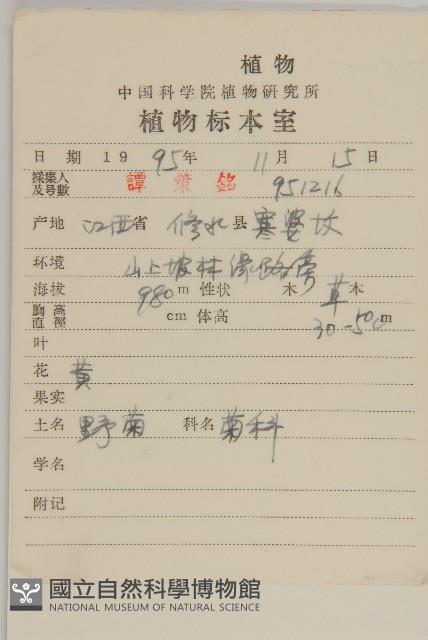 植物
中国科学院植物研究所
植物标本室
日期 1995年 11月 15日
採集人
及号數 譚策銘 951216
产地 江西省 修水县 寒婆坟
环境 山上坡林缘路旁
海拔 980 m 性状 木 草本
胸高
直徑 cm 体高 30-50cm
叶
花 黄
果实
土名 野菊 科名 菊科
学名
附记
國立自然科學博物館
NATIONAL MUSEUM OF NATURAL SCIENCE